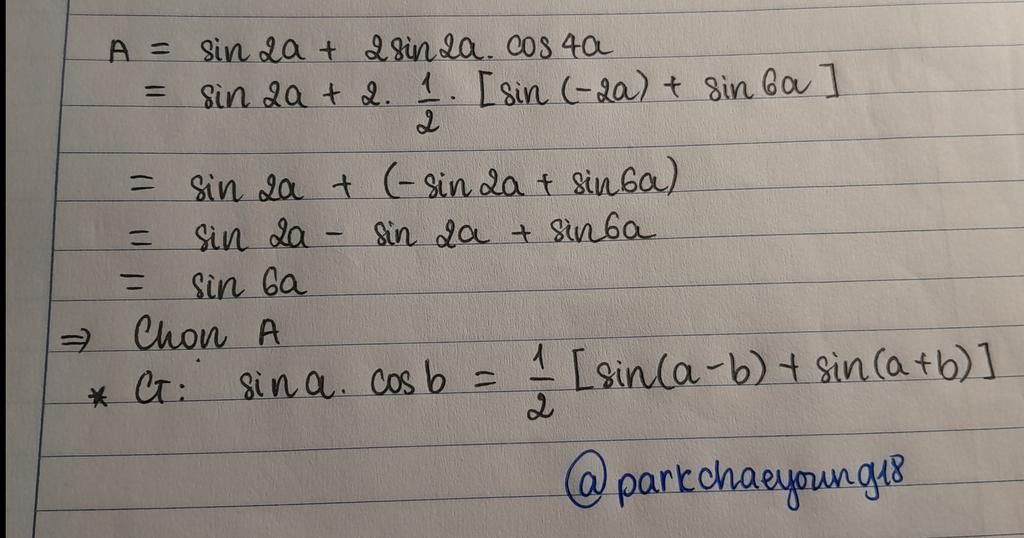 A = sin 2a + 2sin2a. cos 4a
= sin 2a + 2. 1/2. [sin (-2a) + sin 6a]
= sin 2a + (-sin 2a + sin6a)
= sin 2a - sin 2a + sin6a
= sin 6a
⇒ Chọn A
* CT: sin a. cos b = 1/2 [sin(a-b) + sin(a+b)]
@parkchaeyoung18